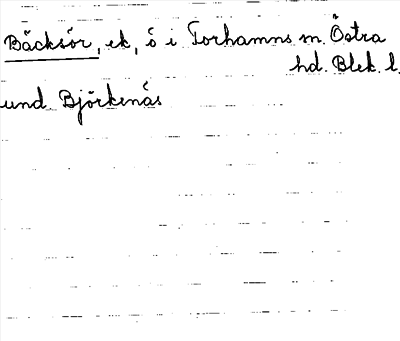 Bäcksör, ek, ö i Torhamns sn. Östra
hd. Blek. l.
und. Björkenäs